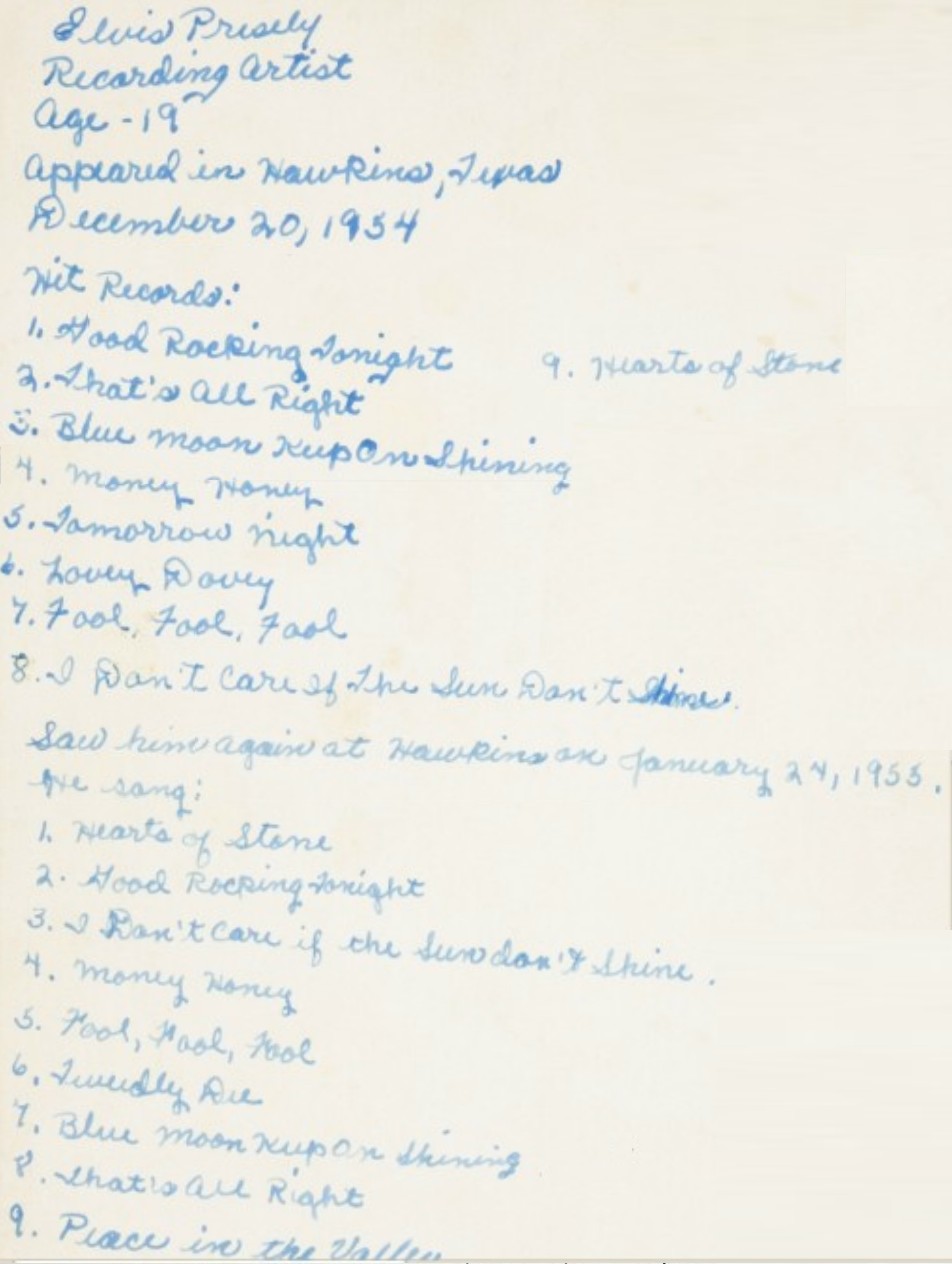 Elvis Presely
Recording Artist
Age - 19
Appeared in Hawkins, Texas
December 20, 1954
Hit Records:
1. Good Rocking Tonight
9. Hearts of Stone
2. That's All Right
3. Blue Moon Keep On Shining
4. Money Honey
5. Tomorrow Night
6. Lovey Dovey
7. Fool, Fool, Fool
8. I Don't Care If The Sun Don't Shine.
Saw him again at Hawkins on January 24, 1955.
He sang:
1. Hearts of Stone
2. Good Rocking Tonight
3. I Don't Care if the Sun don't Shine.
4. Money Honey
5. Fool, Fool, Fool
6. Tweedly Dee
7. Blue Moon Keep On Shining
8. That's All Right
9. Peace in the Valley